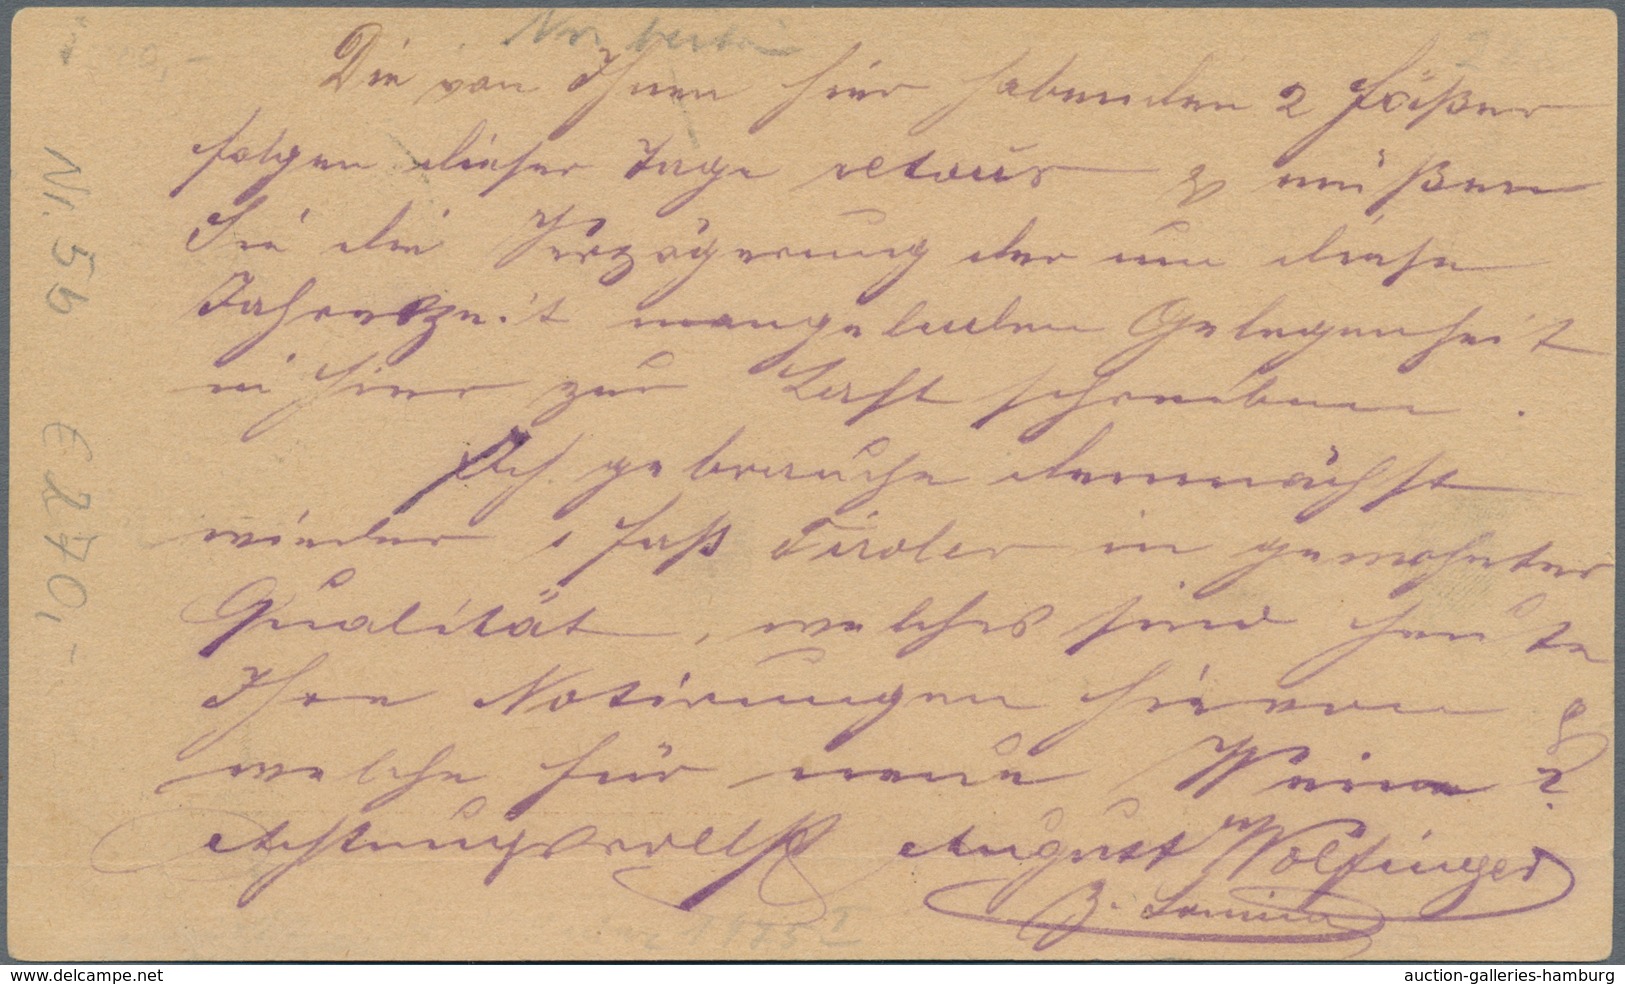 Die von Ihnen hier habenden 2 Fäßer
folgen dieser Tage retour & müßen
Sie die Verzögerung der um diese
Jahreszeit mangelnden Gelegenheit
hier zur Last schreiben.
Ich gebrauche demnächst
wieder 1 Faß Tiroler in gewohnter
Qualität, welches sind heute
Ihre Notirungen hievon &
welche für neue Weine?
Achtungsvollst August Wolfinger
z.
Nr. 5b € 270,-
www.delcampe.net
auction-galleries-hamburg